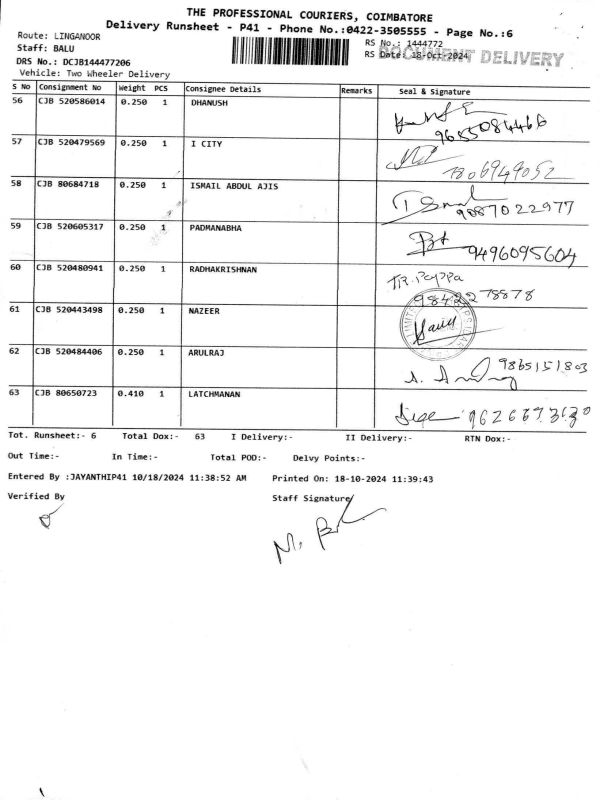 THE PROFESSIONAL COURIERS, COIMBATORE
Delivery Runsheet - P41 - Phone No.:0422-3505555 - Page No.:6
Route: LINGANOOR
RS No.: 1444772
Staff: BALU
RS Date: 18-Oct-2024
DOCUMENT DELIVERY
DRS No.: DCJB144477206
Vehicle: Two Wheeler Delivery
S No Consignment No Weight PCS Consignee Details Remarks Seal & Signature
56 CJB 520586014 0.250 1 DHANUSH
9655084466
57 CJB 520479569 0.250 1 I CITY
58 CJB 80684718 0.250 1 ISMAIL ABDUL AJIS
9087022977
59 CJB 520605317 0.250 1 PADMANABHA
9496095604
60 CJB 520480941 0.250 1 RADHAKRISHNAN
9842278878
61 CJB 520443498 0.250 1 NAZEER
62 CJB 520484406 0.250 1 ARULRAJ
9865151803
63 CJB 80650723 0.410 1 LATCHMANAN
Tot. Runsheet:- 6 Total Dox:- 63 I Delivery:- II Delivery:- RTN Dox:-
Out Time:- In Time:- Total POD:- Delvy Points:-
Entered By :JAYANTHIP41 10/18/2024 11:38:52 AM Printed On: 18-10-2024 11:39:43
Verified By Staff Signature